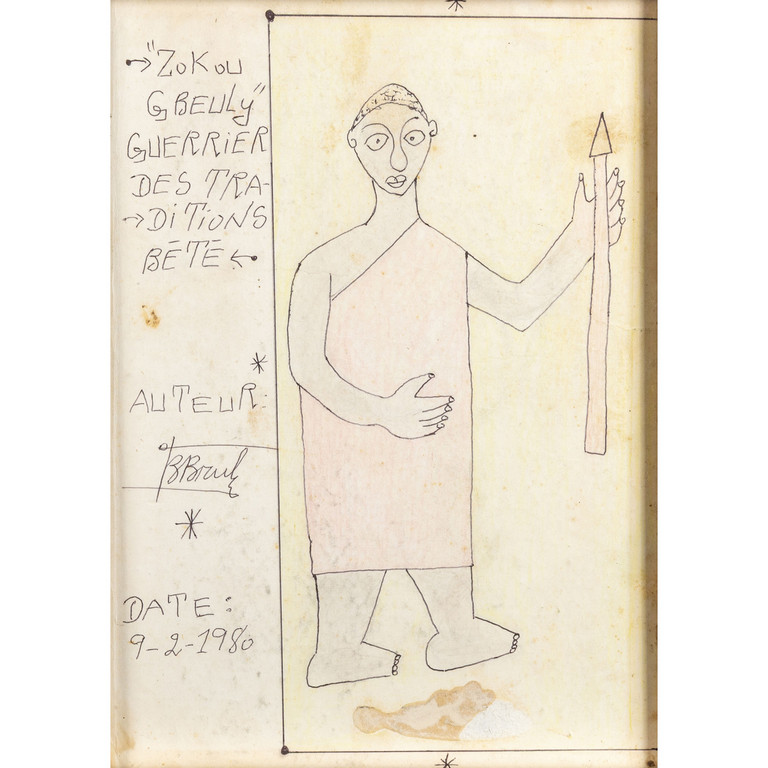 →"ZOKOU
GBEULY"
GUERRIER
DES TRA-
→DITIONS
BÉTÉ←
AUTEUR:
DATE:
9-2-1980